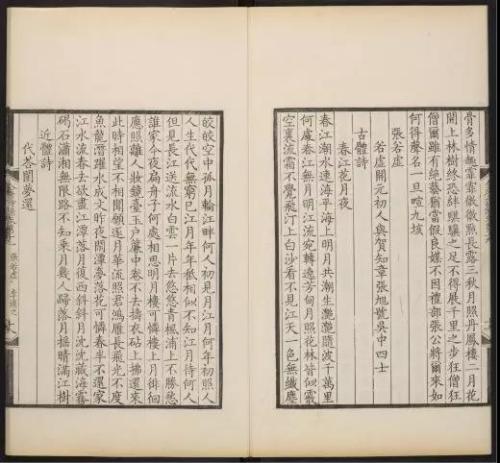 膏多情無霏霏微微點長露三秋月照丹鳳樓二月花
開上林樹終恐絆騏驥之足不得展千里之步狂僧狂
僧爾雖有絕藝猶當假良媒不因禮部張公將爾來如
何得聲名一旦喧九垓
張若虛
若虛開元初人與賀知章張旭號吳中四士
古體詩
春江花月夜
春江潮水連海平海上明月共潮生灧灧隨波千萬里
何處春江無月明江流宛轉遶芳甸月照花林皆似霰
空裏流霜不覺飛汀上白沙看不見江天一色無纖塵
皎皎空中孤月輪江畔何人初見月江月何年初照人
人生代代無窮已江月年年秪相似不知江月待何人
但見長江送流水白雲一片去悠悠青楓浦上不勝愁
誰家今夜扁舟子何處相思明月樓可憐樓上月徘徊
應照離人妝鏡臺玉戶簾中卷不去擣衣砧上拂還來
此時相望不相聞願逐月華流照君鴻雁長飛光不度
魚龍潛躍水成文昨夜閒潭夢落花可憐春半不還家
江水流春去欲盡江潭落月復西斜斜月沈沈藏海霧
碣石瀟湘無限路不知乘月幾人歸落月搖晴滿江樹
近體詩
代答閨夢還
張若虛